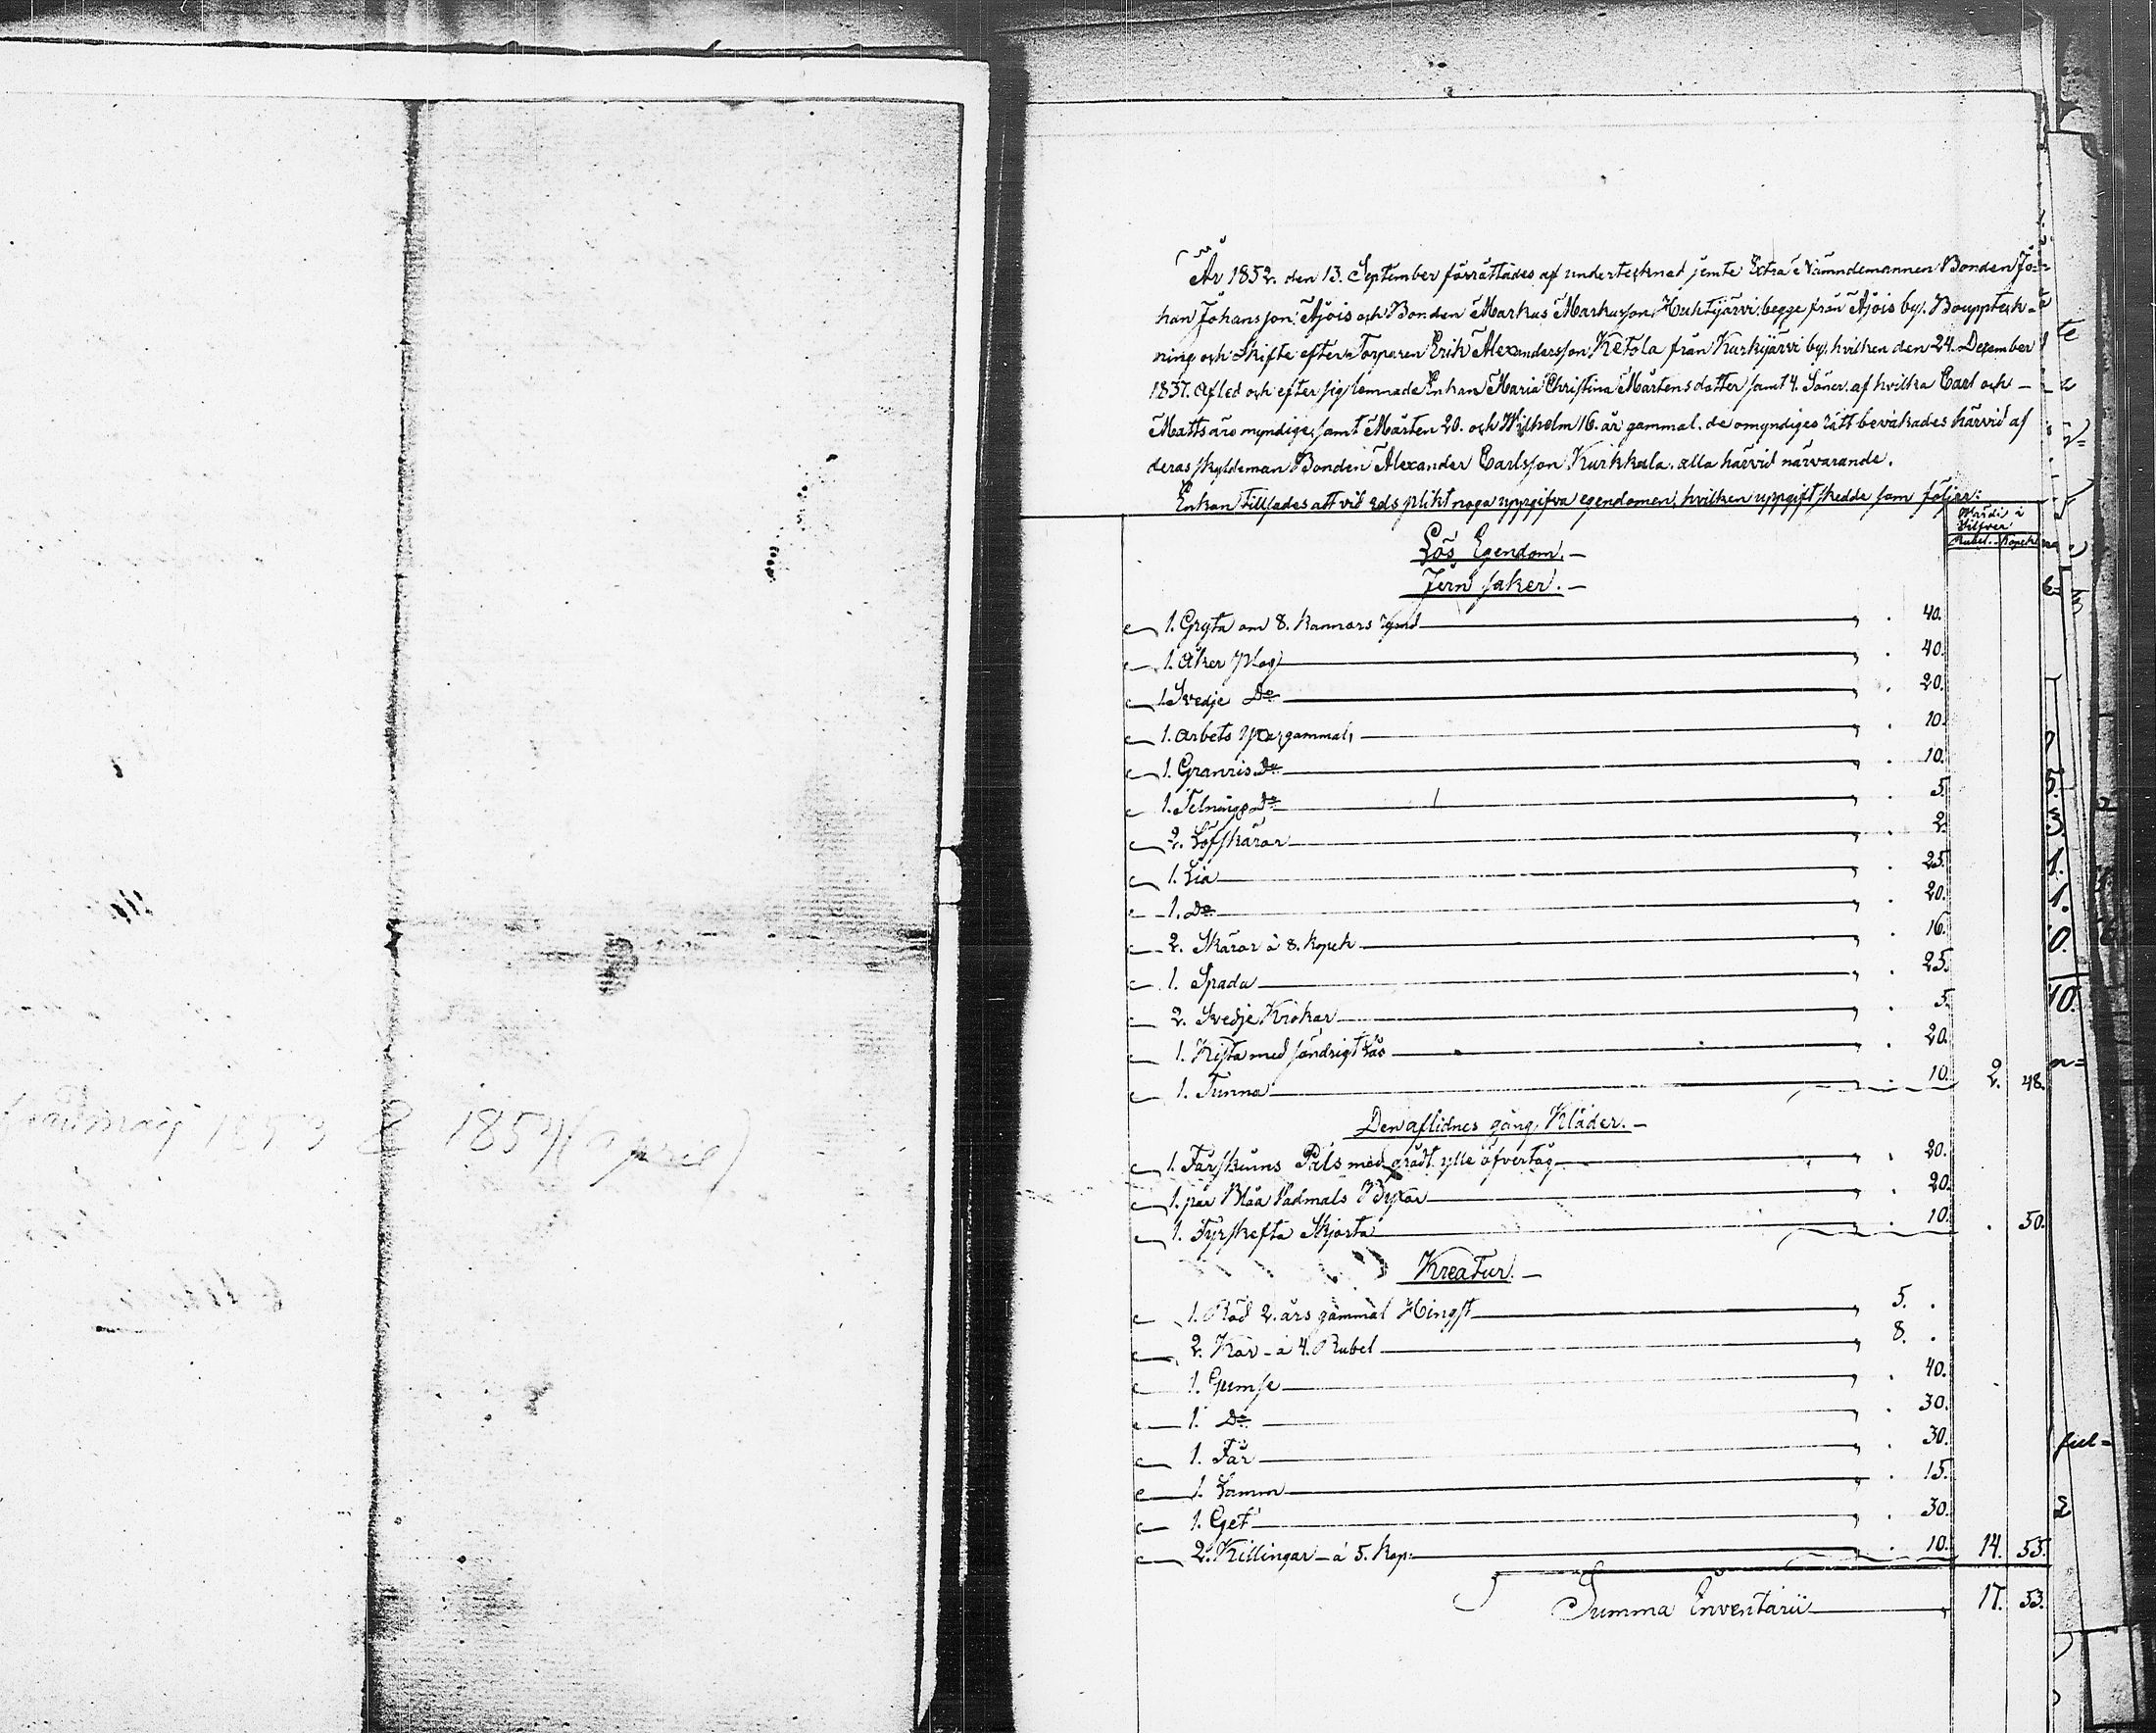 År 1852. den 13. September förrättades af undertecknad jemte Extra Nämndemannen Bonden Jo=
han Johansson Äjöis och Bonden Markus Markusson Huhtijärvi, begge från Äjöis by, Bouppteck=
ning och Skifte efter Torparen Erik Alexandersson Ketola från Kurkijärvi by, hvilken den 24. December
1837. Afled och efter sig lemnade Enkan Maria Christina Mårtensdotter samt 4. Söner. af hvilka Carl och
Matts äro myndige, samt Mårten 20. och Wilhelm 16. år gammal. de omyndiges rätt bevakades härvid af
deras skyldeman Bonden Alexander Carlsson Kurkkala. alla härvid närvarande.
Enkan tillsades att vid eds plikt noga uppgifva egendomen, hvilken uppgift skedde som följer:
Värdi i
Silfver
Rubel. Kopek
Lös Egendom.
Jern saker.
1. Gryta om 8. kannors rymd 40.
1. Åker Plog 40.
1. Svedje Do 20.
1. Arbets yxa, gammal, 10.
1. Granris Do 10.
1. Telnings Do 5.
2. Löfskäror 2.
1. Lia 25.
1. Do 20.
2. Skäror à 8. kopek 16.
1. Spada 25.
2. Svedje Krokar 5.
1. Kista med söndrigt Lås 20.
1. Tunna 10. 2. 48.
Den aflidnes gång Kläder.
1. Fårskinns Päls med grått ylle öfvertåg 20.
1. par Blåa Vadmals Byxor 20.
1. Fyrskefta Skjorta 10. . 50.
Kreatur.
1. Röd 2. års gammal Hingst 5. .
2. Kor à 4. Rubel 8. .
1. Gumse 40.
1. Do 30.
1. Får 30.
1. Lamm 15.
1. Get 30.
2. Killingar à 5. kop: 10. 14. 55.
Summa Inventarii 17. 53.
1853 & 1854 (april)